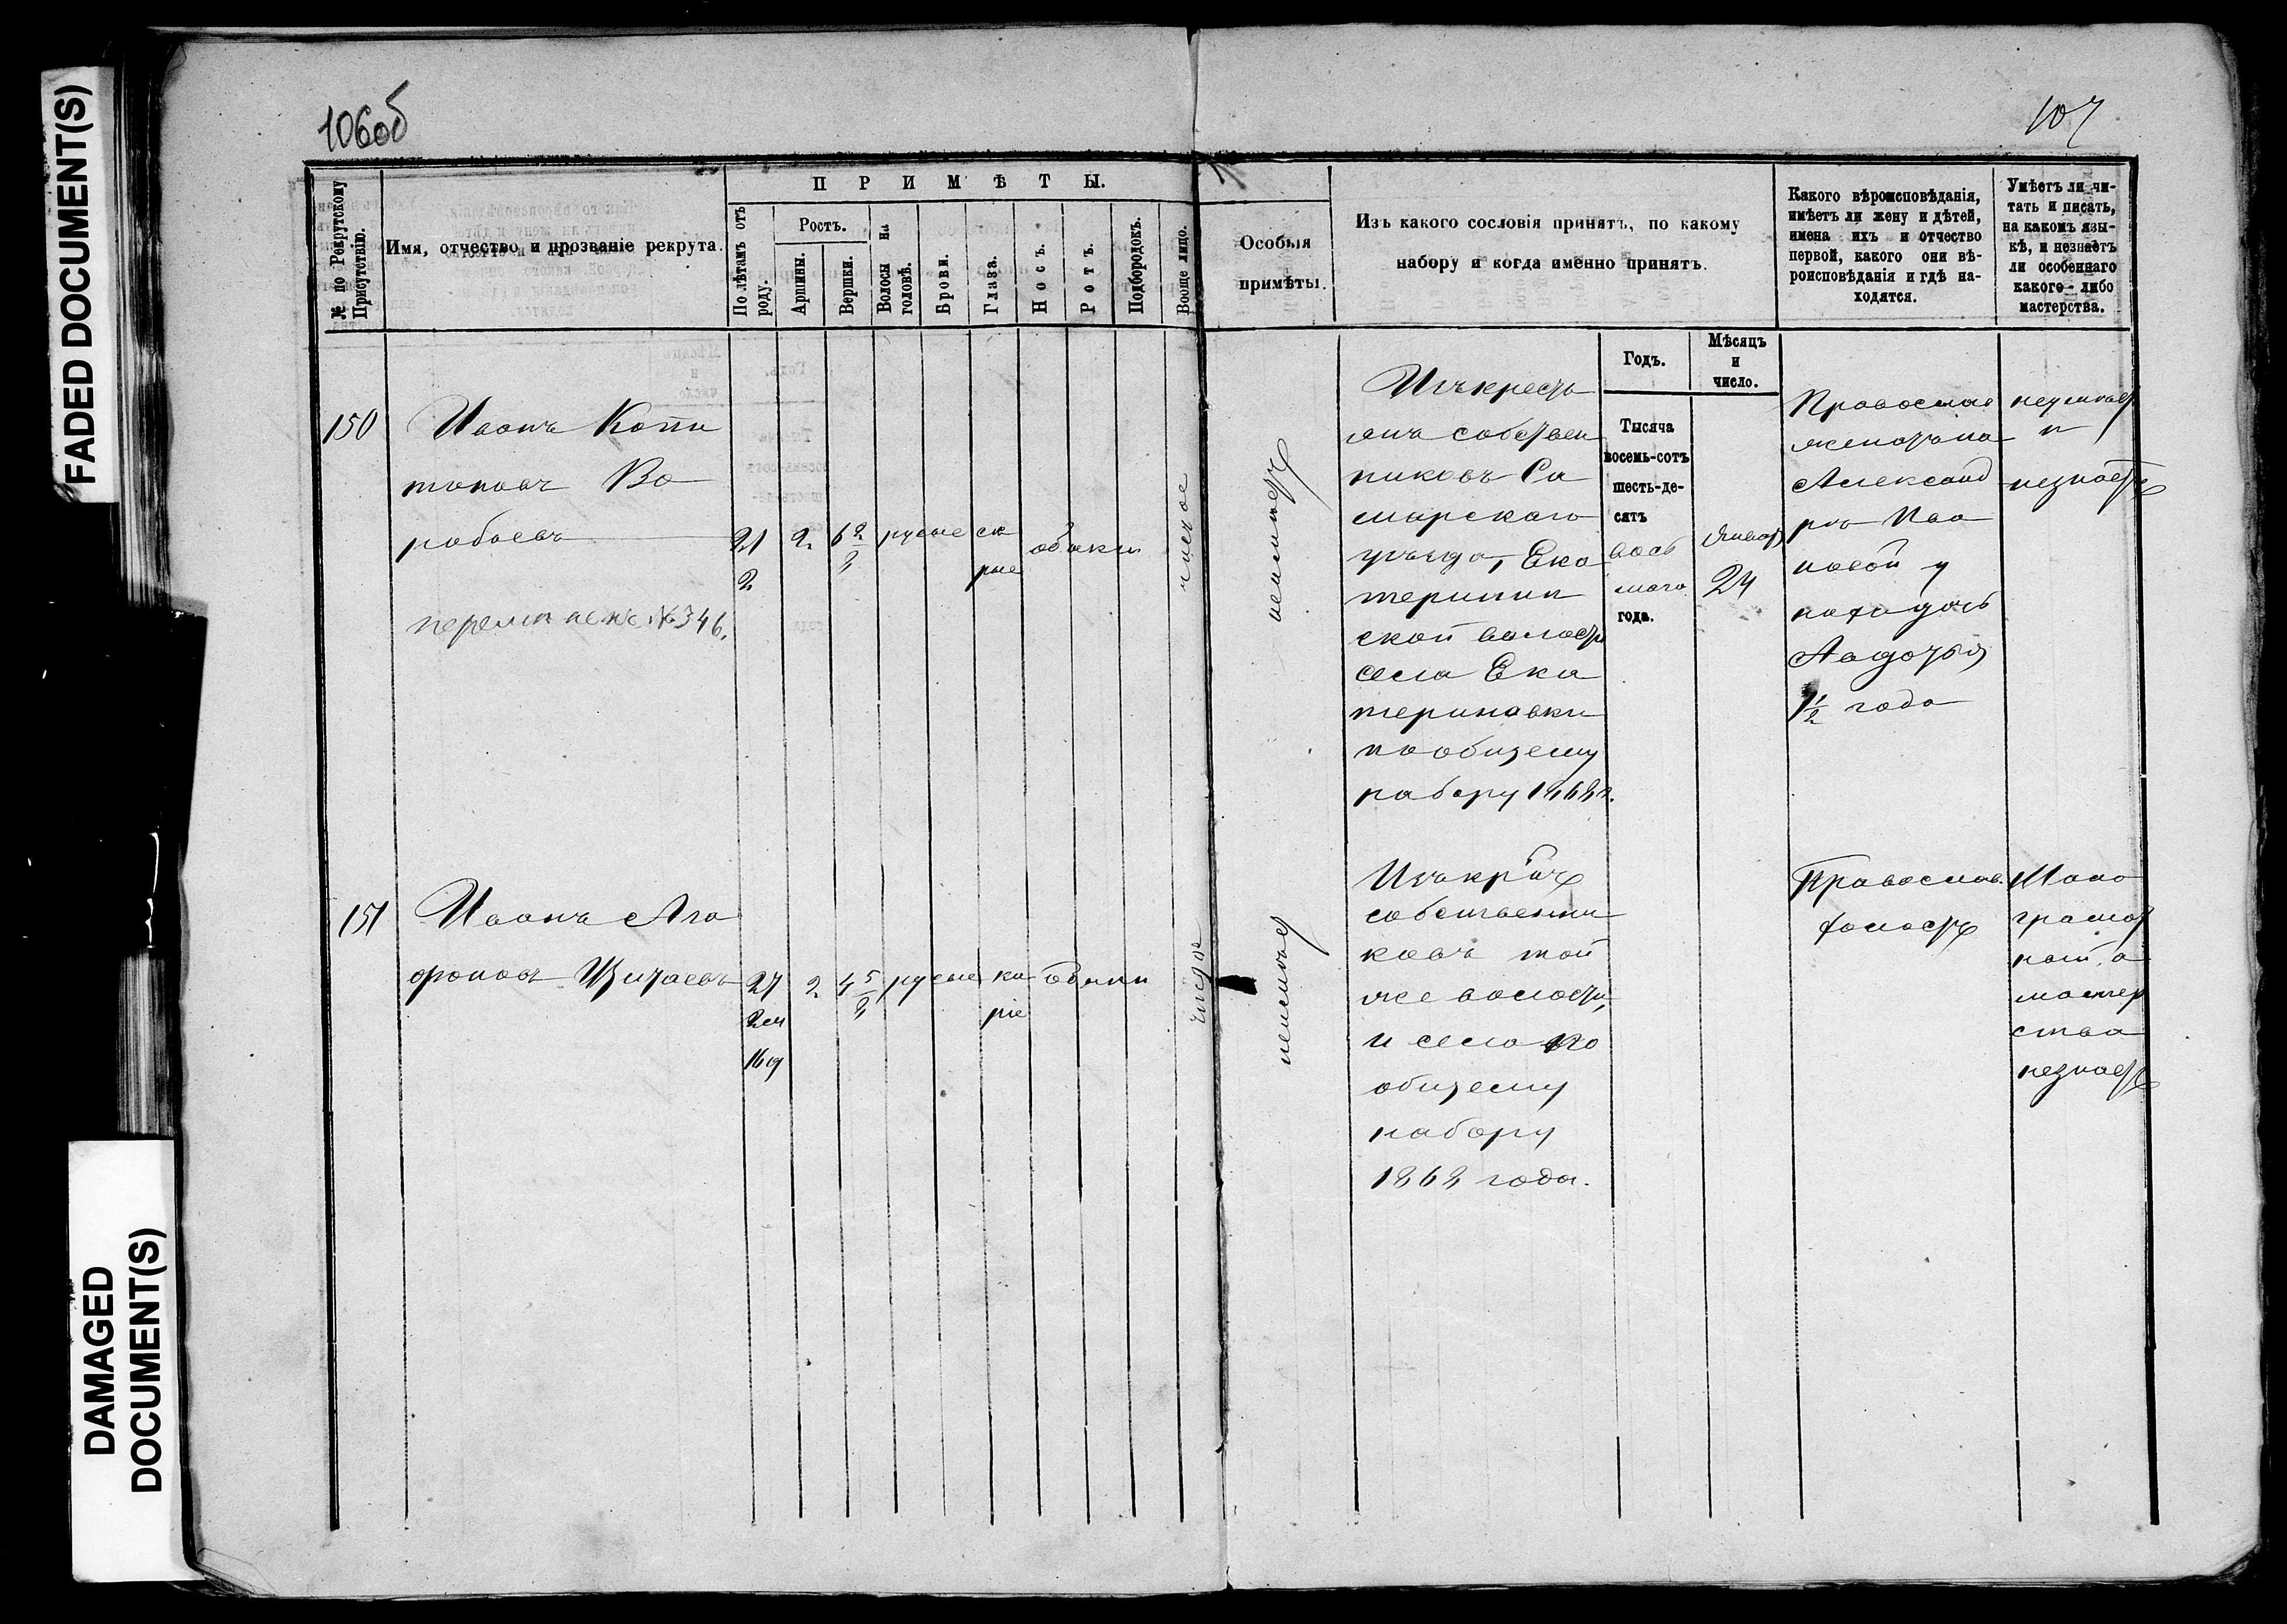 FADED DOCUMENT(S)
DAMAGED
DOCUMENT(S)
106об
107
№ по Рекрутскому
Присутствію.
Имя, отчество и прозваніе рекрута.
ПРИМѢТЫ.
По лѣтамъ отъ
роду.
Ростъ.
Аршины.
Вершки.
Волосы на
головѣ.
Брови.
Глаза.
Носъ.
Ротъ.
Подбородокъ.
Вооще лицо.
Особыя
примѣты.
Изъ какого сословія принятъ, по какому
набору и когда именно принятъ.
Какого вѣроисповѣданія,
имѣетъ ли жену и дѣтей,
имена ихъ и отчество
первой, какого они вѣ-
роисповѣданія и гдѣ на-
ходятся.
Умѣетъ ли чи-
тать и писать,
на какомъ язы-
кѣ, и незнаетъ
ли особеннаго
какого-либо
мастерства.
Годъ.
Мѣсяцъ
и
число.
150
Иванъ Капи
тоновъ Во
робьевъ
перемѣненъ № 346.
21
2
2
6 2/8
русые
сѣ
рые
обыкн
чистое
неимѣетъ
Изъ кресть
янъ собствен
никовъ Са
марскаго
уѣзда, Ека
теринин
ской волости
села Ека
териновки
по общему
набору 1868 г.
Тысяча
восемь-сотъ
шесть-де-
сятъ
вось
маго
года.
Январь
24
Православ
женатъ на
Александ
рѣ Ива
новой у
нихъ дочь
Авдотья
1 1/2 года
неумѣетъ
и
незнаетъ
151
Иванъ Ага
фоновъ
27
2 м
16 д
2
4 5/8
русые
ка
ріе
обыкн
чистое
неимѣетъ
Изъ кр-нъ
собственни
ковъ той
же волости,
и села по
общему
набору
1868 года.
Православ.
холостъ
Мало
грамот
ный, а
мастер
ства
незнаетъ